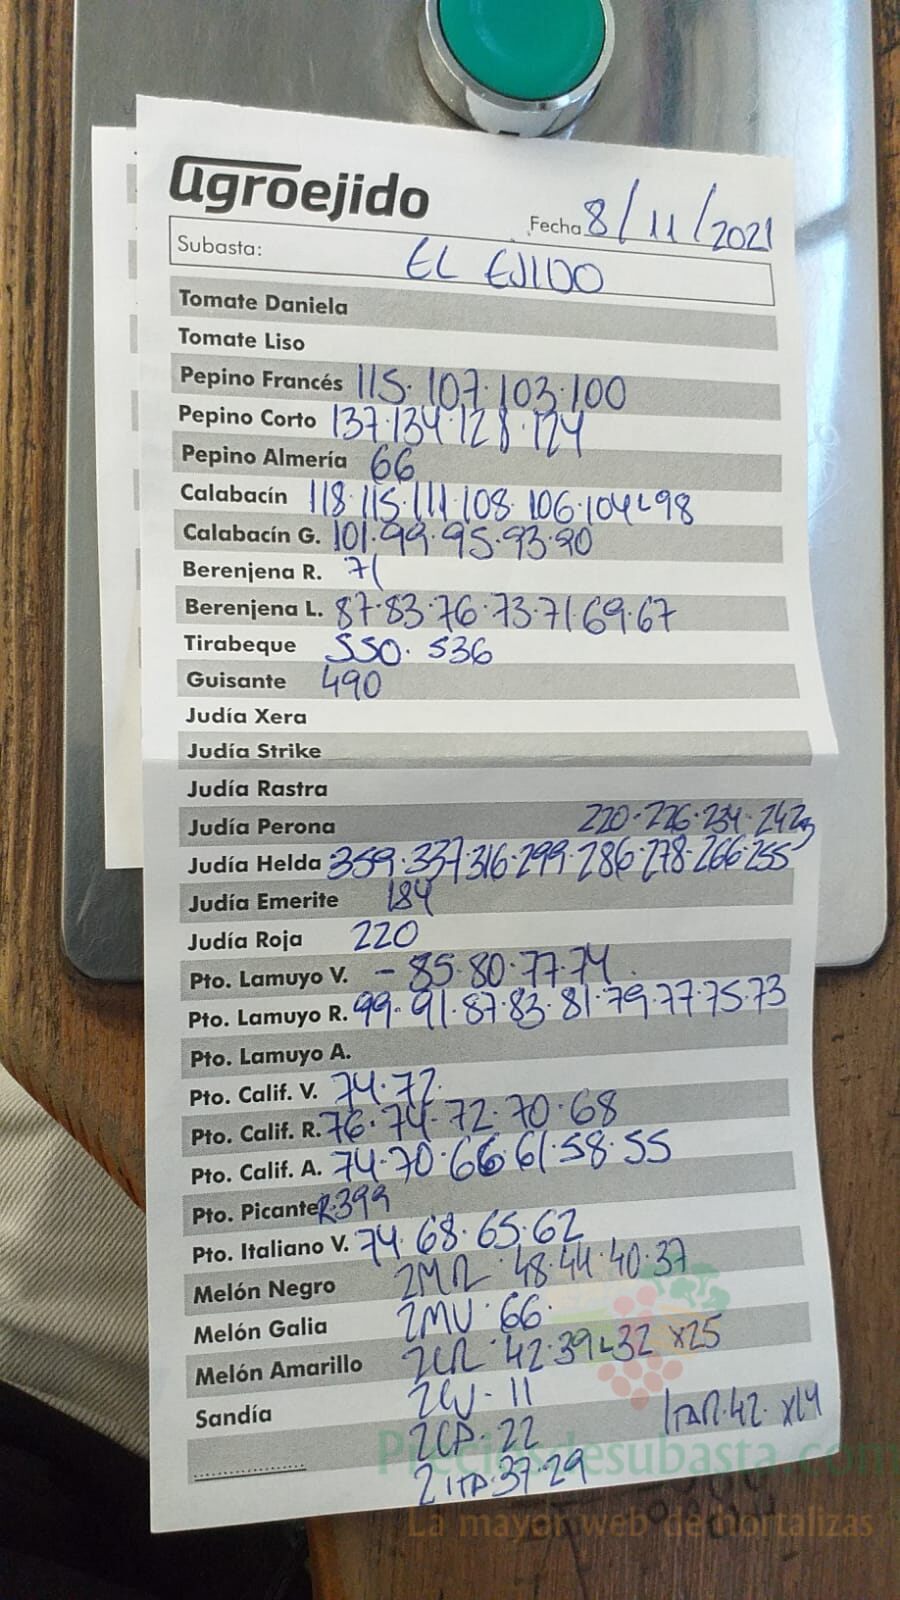 agroejido
Fecha 8/11/2021
Subasta: EL EJIDO
Tomate Daniela
Tomate Liso
Pepino Francés 115. 107. 103. 100
Pepino Corto 137. 134. 128. 124
Pepino Almería 66
Calabacín 118. 115. 111. 108. 106. 104 L 98
Calabacín G. 101. 99. 95. 93. 90
Berenjena R. 71
Berenjena L. 87. 83. 76. 73. 71. 69. 67
Tirabeque 550. 536
Guisante 490
Judía Xera
Judía Strike
Judía Rastra
Judía Perona 220. 226. 234. 242
Judía Helda 359. 337. 316. 299. 286. 278. 266. 255
Judía Emerite 184
Judía Roja 220
Pto. Lamuyo V. - 85. 80. 77. 74
Pto. Lamuyo R. 99. 91. 87. 83. 81. 79. 77. 75. 73
Pto. Lamuyo A.
Pto. Calif. V. 74. 72.
Pto. Calif. R. 76. 74. 72. 70. 68
Pto. Calif. A. 74. 70. 66. 61. 58. 55
Pto. Picante R. 399
Pto. Italiano V. 74. 68. 65. 62
Melón Negro 2MR. 48. 44. 40. 37
Melón Galia 2MV. 66.
Melón Amarillo 2CR. 42. 39 L 32 x25
Sandía 2CV. 11
2CA. 22 ITAR. 42. x14
2 ITA. 37. 29
Preciosdesubasta.com
La mayor web de hortalizas